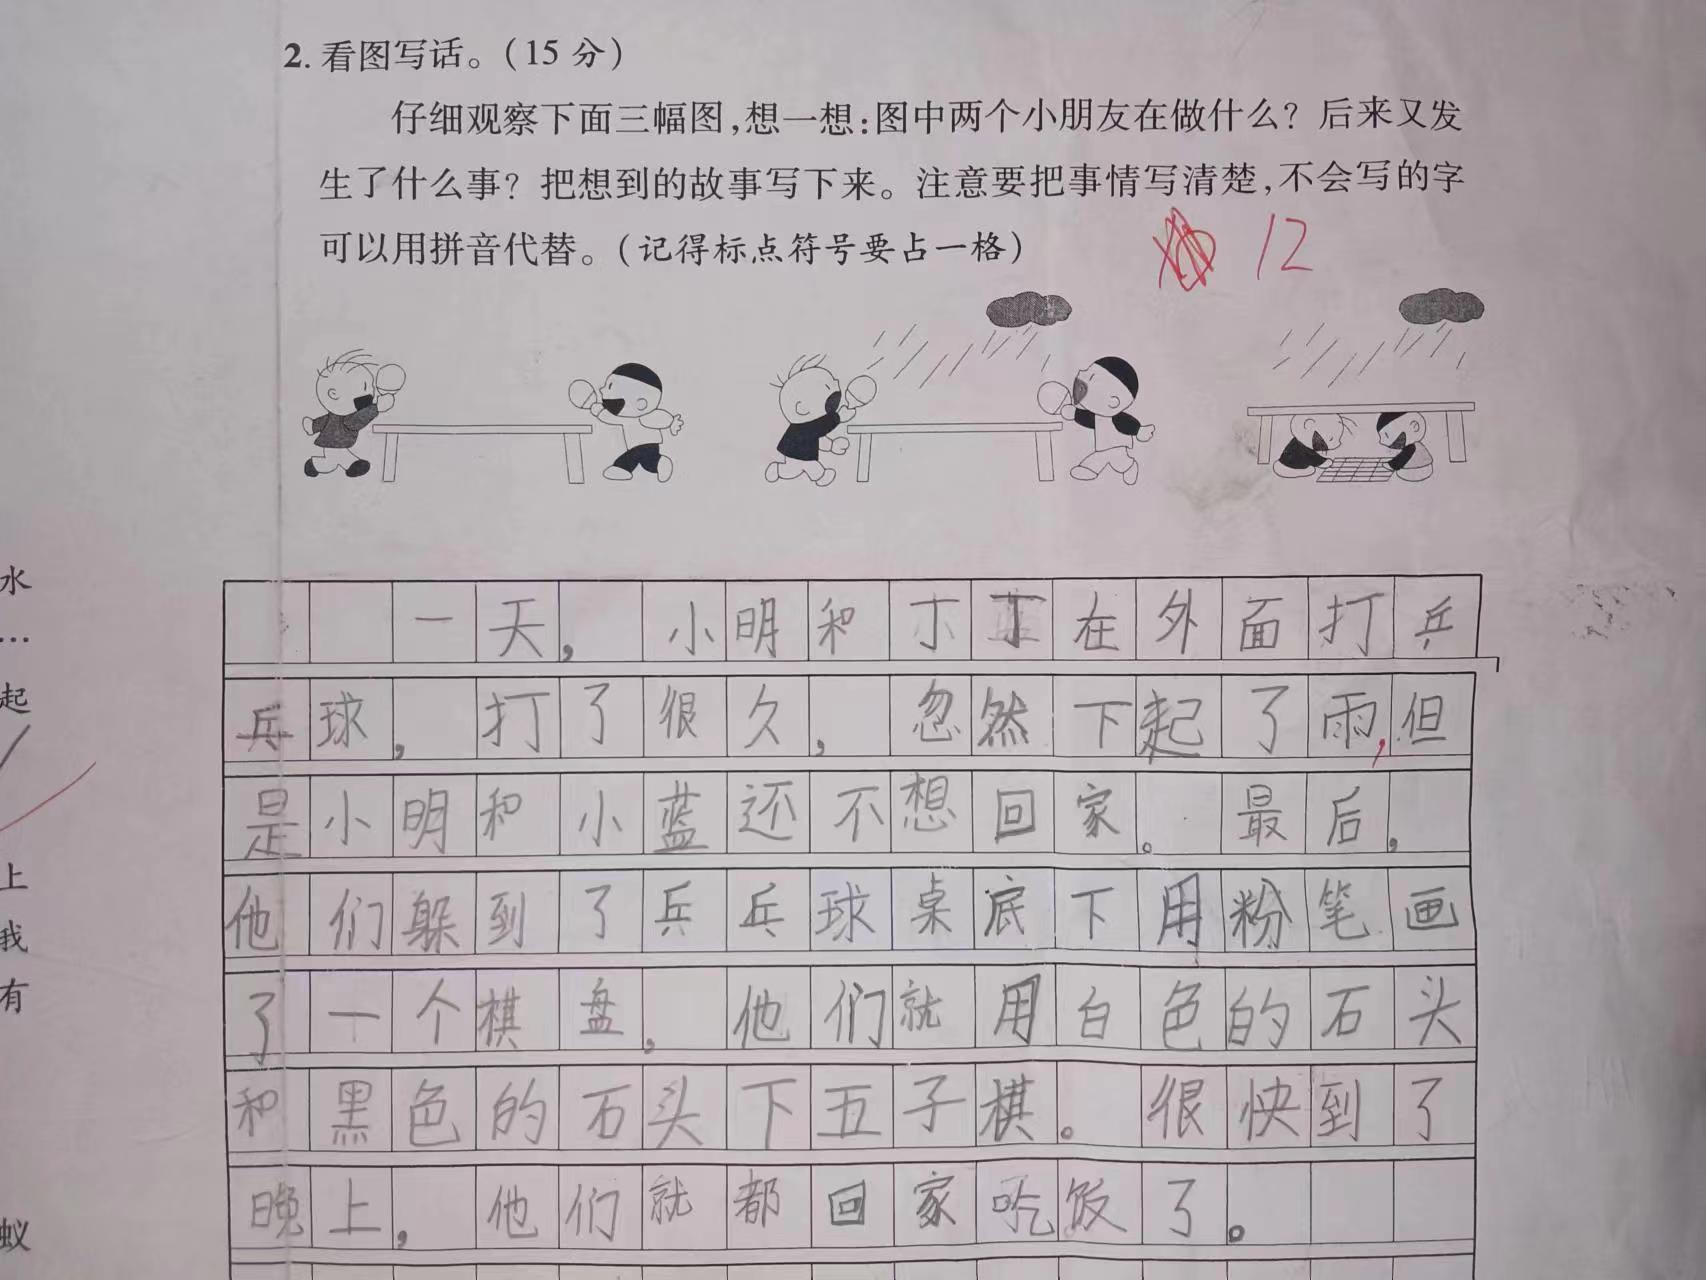 2. 看图写话。(15 分)
仔细观察下面三幅图,想一想:图中两个小朋友在做什么? 后来又发
生了什么事? 把想到的故事写下来。注意要把事情写清楚,不会写的字
可以用拼音代替。(记得标点符号要占一格)
12
一天,小明和丁丁在外面打乒
乓球,打了很久,忽然下起了雨,但
是小明和小蓝还不想回家。最后,
他们躲到了乒乓球桌底下用粉笔画
了一个棋盘,他们就用白色的石头
和黑色的石头下五子棋。很快到了
晚上,他们就都回家吃饭了。
水
…
起
上
我
有
蚁